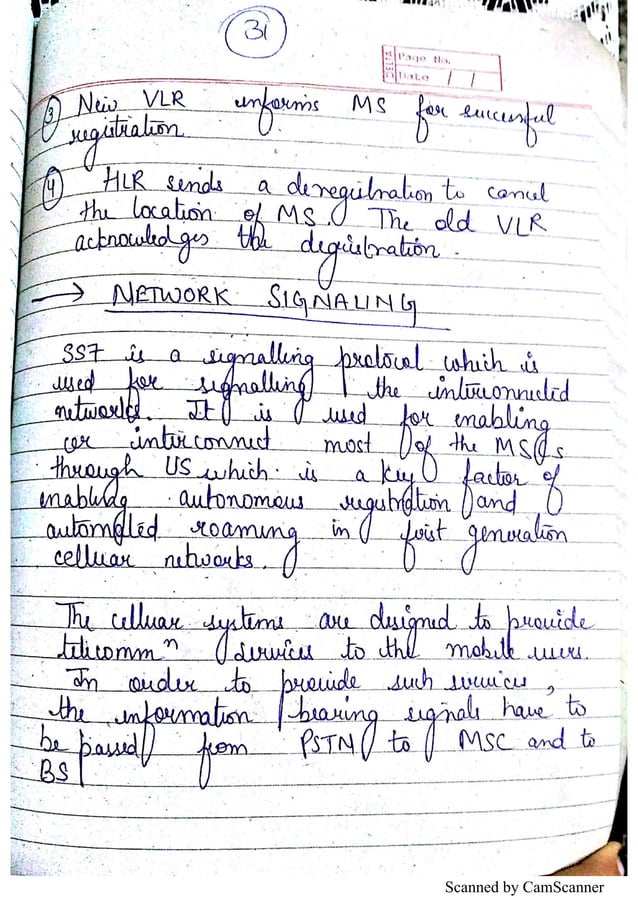 31
DELTA Page No.
Date / /
③ New VLR informs MS for successful
registration
④ HLR sends a deregistration to cancel
the location of MS. The old VLR
acknowledges the degistration.
→ NETWORK SIGNALING
SS7 is a signalling protocol which is
used for signalling the interconnected
networks. It is used for enabling
or interconnect most of the MSCs
through US which is a key factor of
enabling autonomous registration and
automated roaming in first generation
celluar networks.
The celluar systems are designed to provide
telecommⁿ services to the mobile users.
In order to provide such services,
the information bearing signals have to
be passed from PSTN to MSC and to
BS
Scanned by CamScanner